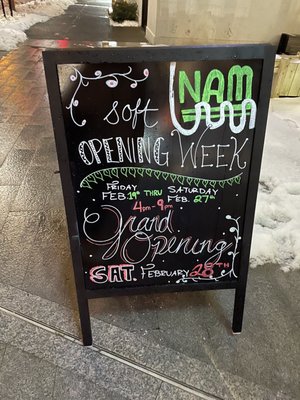 NAM
Soft
OPENING WEEK
FRIDAY THRU SATURDAY
FEB. 19th FEB. 27th
4pm-9pm
Grand
Opening
SAT. FEBRUARY 28TH